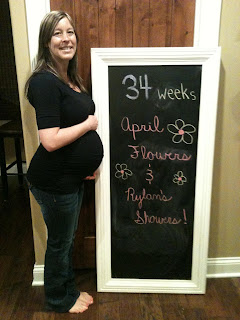 34 weeks
April
Flowers
&
Rylan's
Showers!